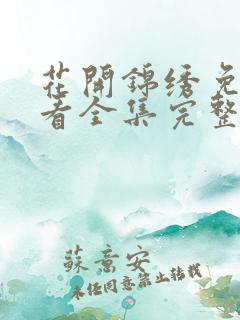 花開錦绣免
看全集完整
蘇意安
未经同意禁止转载